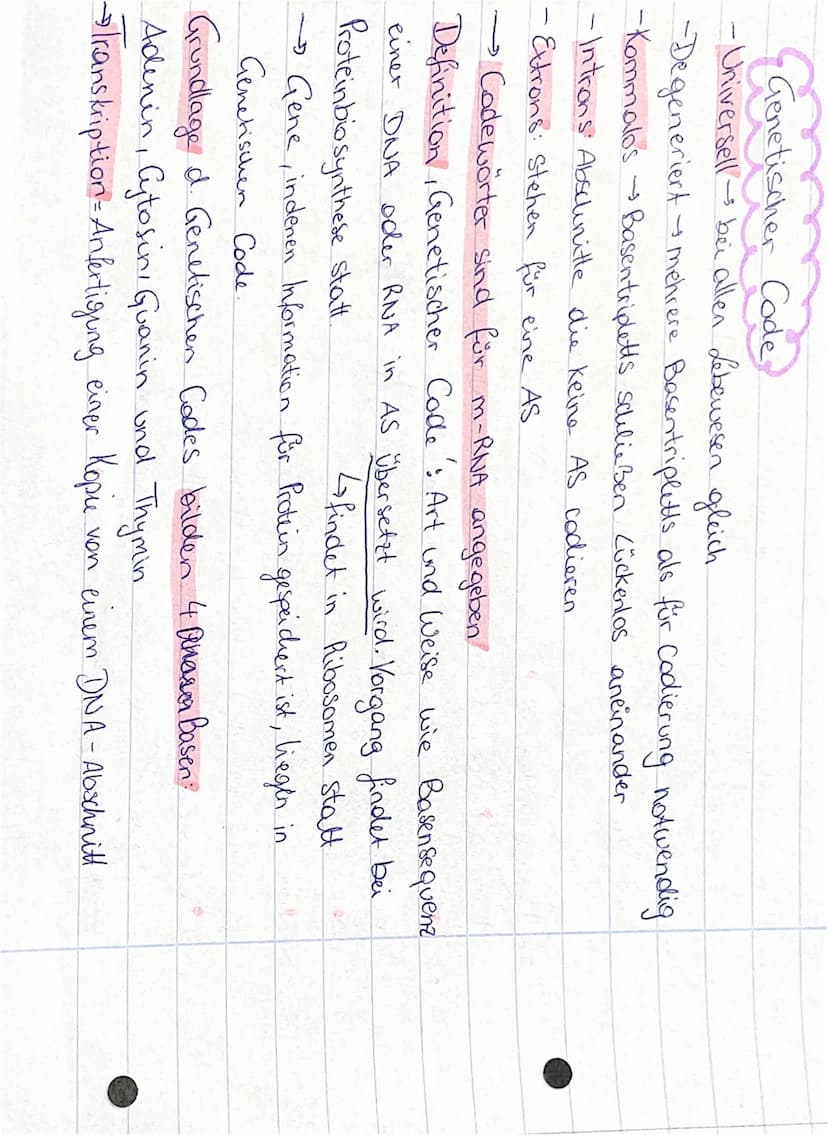 Genetischer Code
- Universell → bei allen Lebewesen gleich
- Degeneriert → mehrere Basentripletts als für Codierung notwendig
- Kommalos → Basentripletts schließen Lückenlos aneinander
- Introns: Abschnitte die keine AS codieren
- Extrons: stehen für eine AS
→ Codewörter sind für m-RNA angegeben
Definition „Genetischer Code": Art und Weise wie Basensequenz
einer DNA oder RNA in AS übersetzt wird. Vorgang findet bei
Proteinbiosynthese statt. ↳ findet in Ribosomen statt
→ Gene, indenen Information für Protein gespeichert ist, liegen in
Genetischen Code.
Grundlage d. Genetischen Codes bilden 4 Basen:
Adenin, Cytosin, Guanin und Thymin
→ Transkription = Anfertigung einer Kopie von einem DNA-Abschnitt